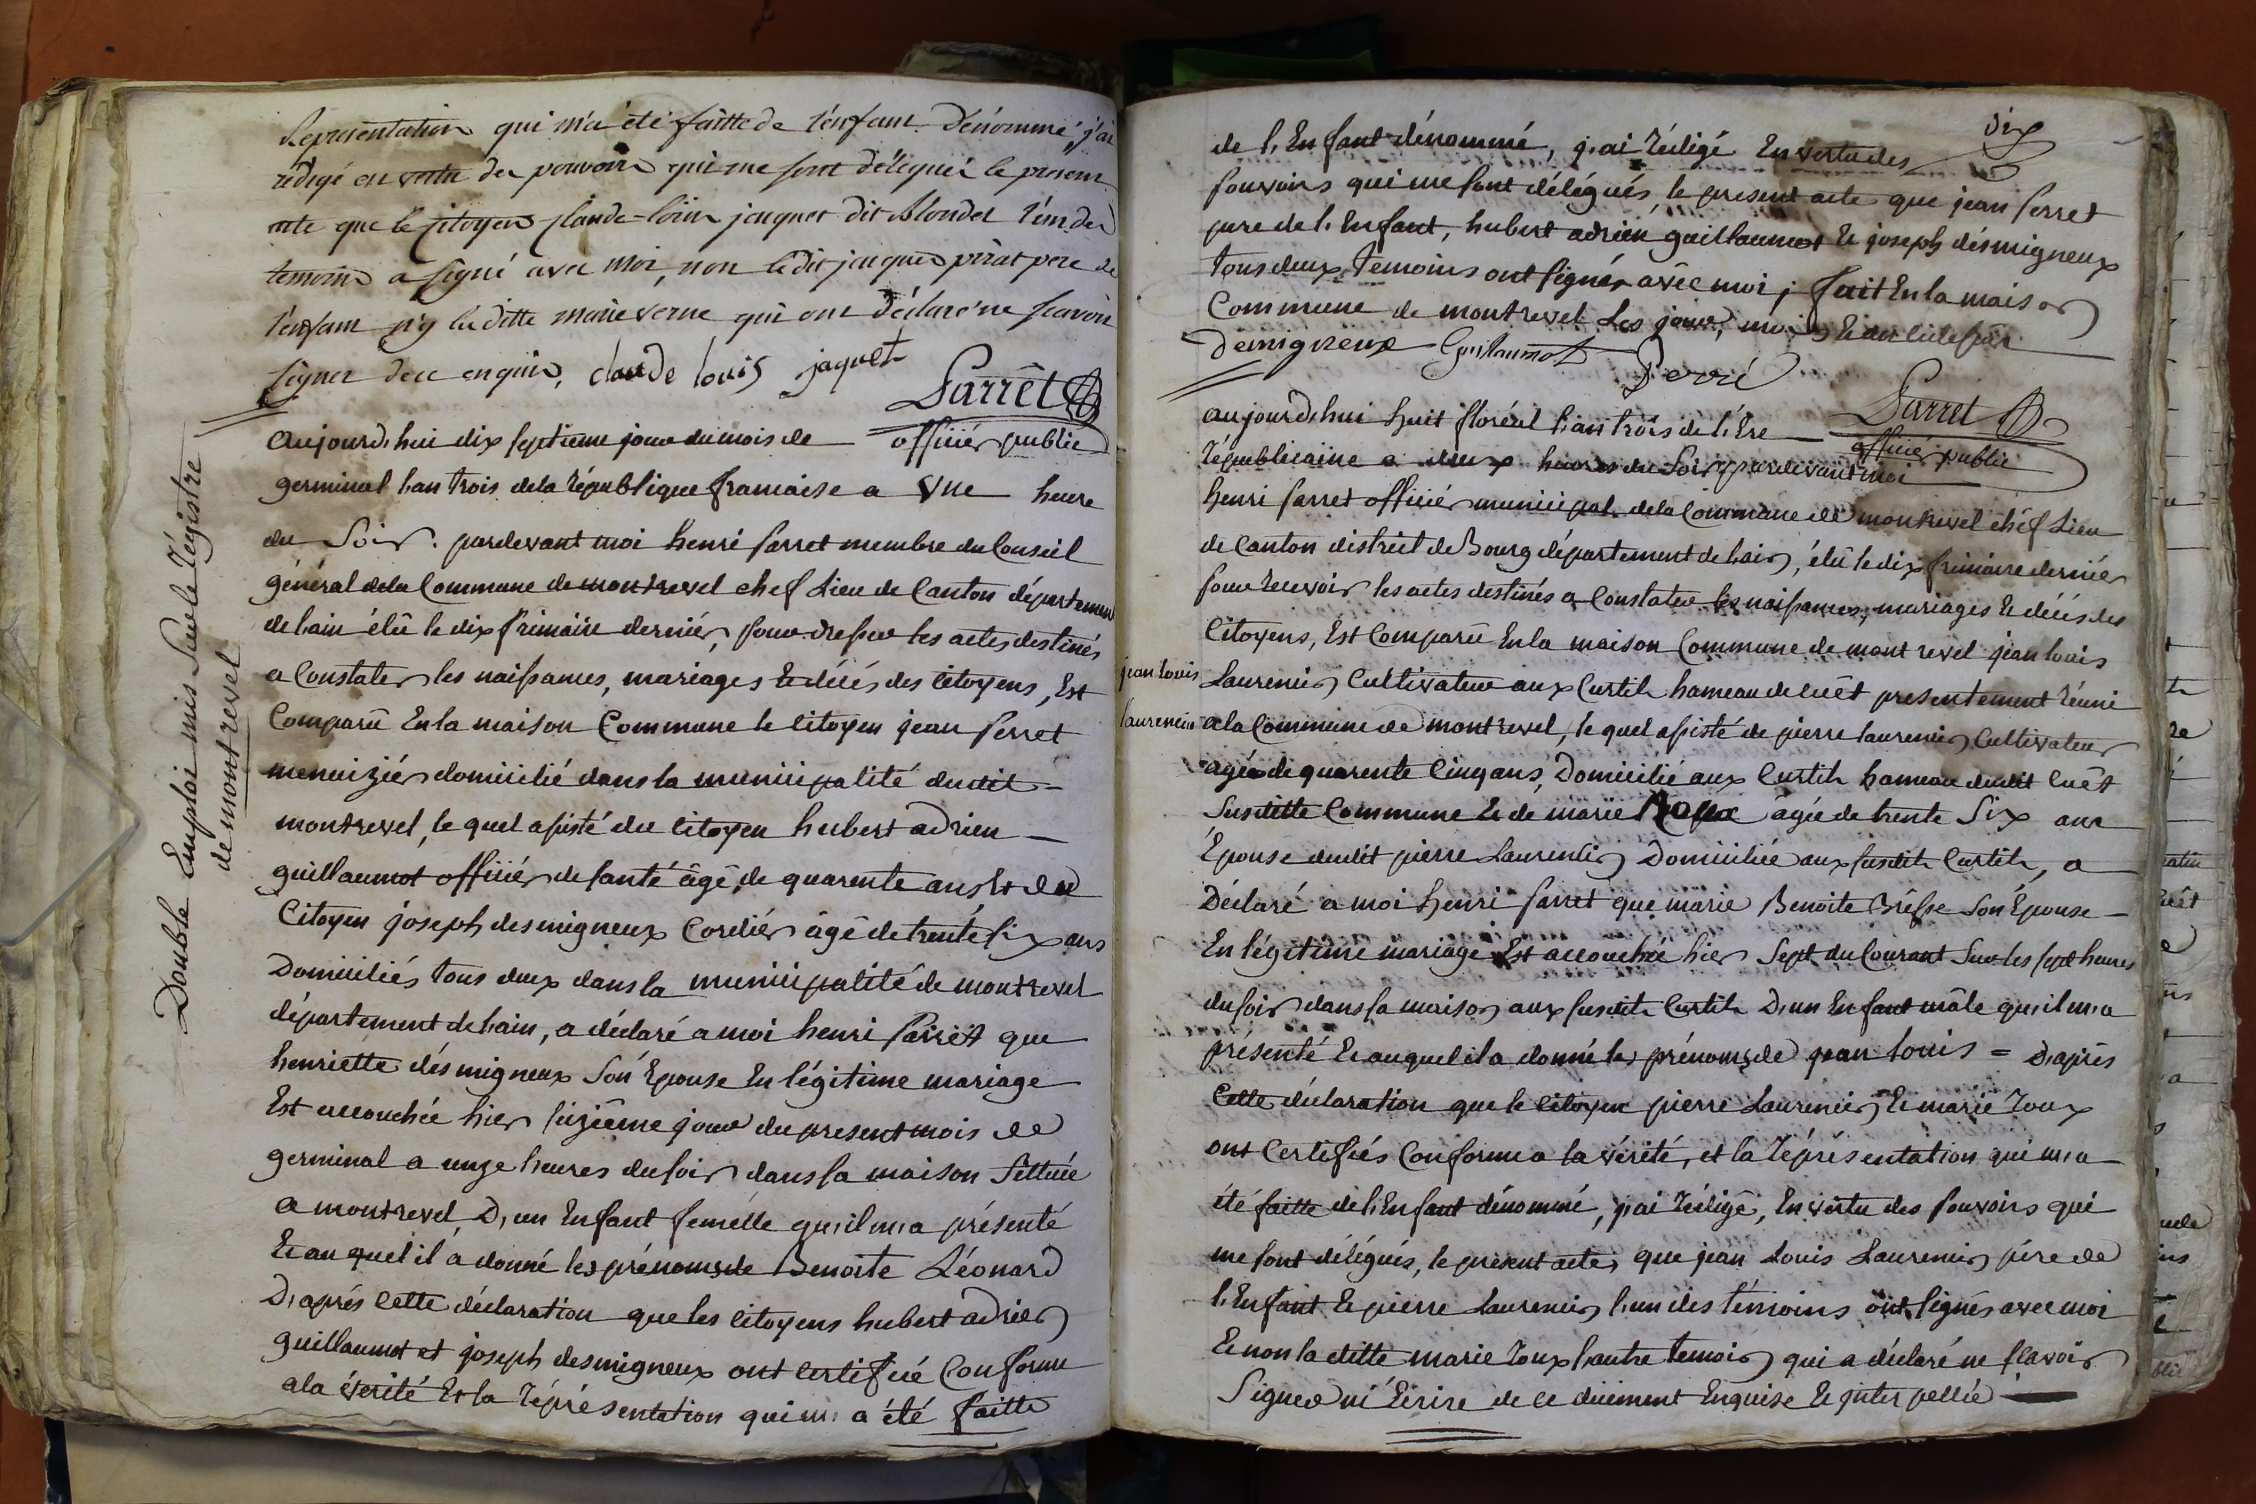 Représentation qui m'a été faitte de l'enfant dénommé, j'ai
rédigé en vertu des pouvoirs qui me sont délégués le present
acte que le citoyen claude-loüis jaquet dit blondet l'un des
temoins a signé avec moi, non ledit jacques pirat pere de
l'enfant n'y la ditte marie verne qui ont déclaré ne scavoir
signer de ce enquis, claude louis jaquet
Sarrêt
officiér public
Double Emploi mis Sur le Régistre
de montrevel
Aujourd'hui dix septieme jour du mois de
germinal l'an trois de la République francaise a Une heure
du Soir. pardevant moi henri sarret membre du Conseil
général de la Commune de montrevel chef Lieu de Canton département
de l'ain élû le dix frimaire derniér, pour dresser les actes destinés
a Constater les naissances, mariages Et décés des Citoyens, Est
Comparû En la maison Commune le Citoyen jean perret
menuiziér domicilié dans la municipalité dudit
montrevel, le quel assisté du citoyen hubert adrien
guillaumot officiér de santé âgé de quarente ans, Et du
Citoyen joseph desmigneux Cordiér âgé de trente six ans
Domiciliés tous deux dans la municipalité de montrevel
département de l'ain, a déclaré a moi henri sarrêt que
henriette désmigneux Son Epouse En légitime mariage
Est accouchée hier seizième jour du present mois de
germinal a onze heures du soir dans sa maison Sittuée
a montrevel D'un Enfant femélle qu'il m'a présenté
Et au quel il a donné les prénoms de Benoite Léonard
D'aprés cette déclaration que les citoyens hubert adrien
guillaumot et joseph desmigneux ont certifié Conforme
a la vérité Et la Réprésentation qui m'a été faitte
six
de l'Enfant dénommé, j'ai Rédigé En vertu des
pouvoirs qui me sont délégués, le present acte que jean perret
pere de l'Enfant, hubert adrién guillaumot Et joseph désmigneux
tous deux temoins ont signés avec moi, fait En la maison
Commune de montrevel Les jour, mois Et an cidessus
Demigneux Guillaumot
Perré
Sarret
officiér public
Aujourd'hui huit floréal l'an trois de l'Ere
Républicaine a deux heures du Soir pardevant moi
henri sarret officiér municipal de la Commune de montrevel chéf Lieu
de Canton district de Bourg département de l'ain, élû le dix frimaire derniér
pour Recevoir les actes destinés a Constater les naissances, mariages Et décés des
Citoyens, Est Comparû En la maison Commune de mont revel jean louis
jean louis
laurencin
Laurencin Cultivateur aux Curtils hameau de cuêt presentement Réuni
a la Commune de montrevel, le quel assisté de pierre laurencin Cultivateur
agé de quarente Cinq ans, Domicilié aux Curtils hameau dudit Cuêt
Susditte Commune Et de marie Roux âgée de trente Six ans
Épouse dudit pierre Laurencin Domiciliée aux susdits Curtils, a
Déclaré a moi henri sarret que marie Benoite Brêsse Son Epouse
En légitime mariage Est accouchée hier Sept du Courant Sur les sept heures
du soir dans sa maison aux susdits Curtils D'un Enfant mâle qu'il m'a
présenté Et auquel il a donné les prénoms de jean louis = D'aprés
Cette déclaration que le citoyen pierre Laurencin Et marie Roux
ont Certifiés Conforme a la vérité, et la Réprésentation qui m'a
été faitte de l'Enfant dénommé, j'ai Rédigé, En vertu des pouvoirs qui
me sont délégués, le présent acte, que jean Louis Laurencin pére de
l'Enfant Et pierre Laurencin l'un des témoins ont signés avec moi
Et non la ditte marie Roux l'autre temoin qui a déclaré ne scavoir
Signer ni Ecrire de ce duement Enquise Et interpellée